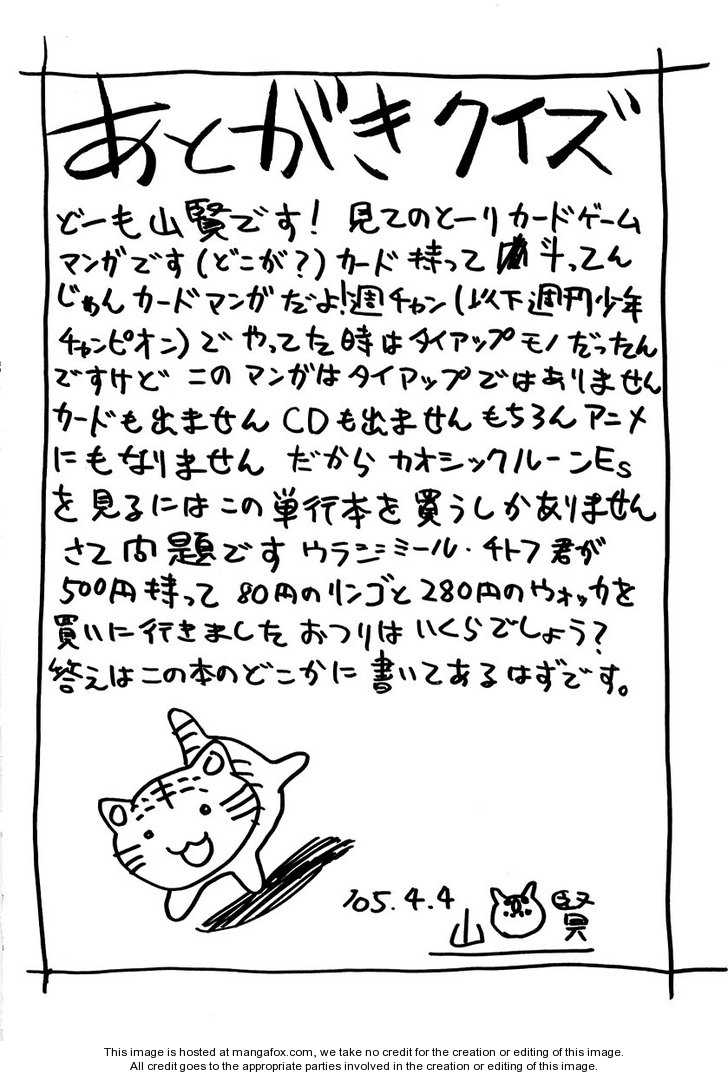 あとがきクイズ
どーも山賢です! 見てのとーりカードゲーム
マンガです(どこが?)カード持って 斗ってん
じゃんカードマンガだよ!週チャン(以下週刊少年
チャンピオン)でやってた時はタイアップモノだったん
ですけどこのマンガはタイアップではありません
カードも出ませんCDも出ませんもちろんアニメ
にもなりません だからカオシックルーンEs
を見るにはこの単行本を買うしかありません
さて問題です ウラジミール・チトフ君が
500円持って80円のリンゴと280円のウォッカを
買いに行きました おつりはいくらでしょう?
答えはこの本のどこかに書いてあるはずです。
'05.4.4
山 賢
This image is hosted at mangafox.com, we take no credit for the creation or editing of this image.
All credit goes to the appropriate parties involved in the creation or editing of this image.